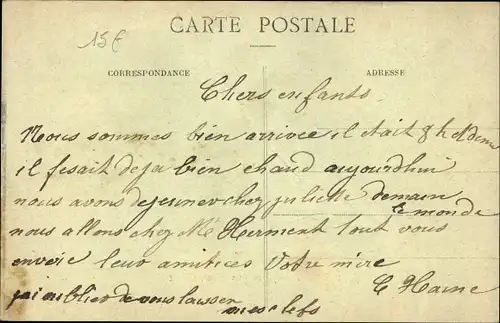 15 f
CARTE POSTALE
CORRESPONDANCE
ADRESSE
Chers enfants
Nous sommes bien arrivée il etait 8 h et demi
il fesait deja bien chaud aujourdhui
nous avons dejeuner chez juliette demain
nous allons chez Me Herment tout le monde vous
envoie leur amitiées Votre mère
j'ai oublier de vous laisser mes clefs